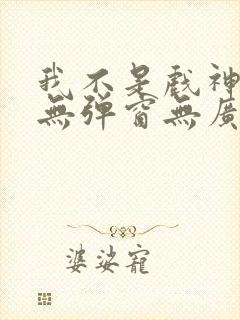 我不是戲神
無彈窗無廣
婆娑寵